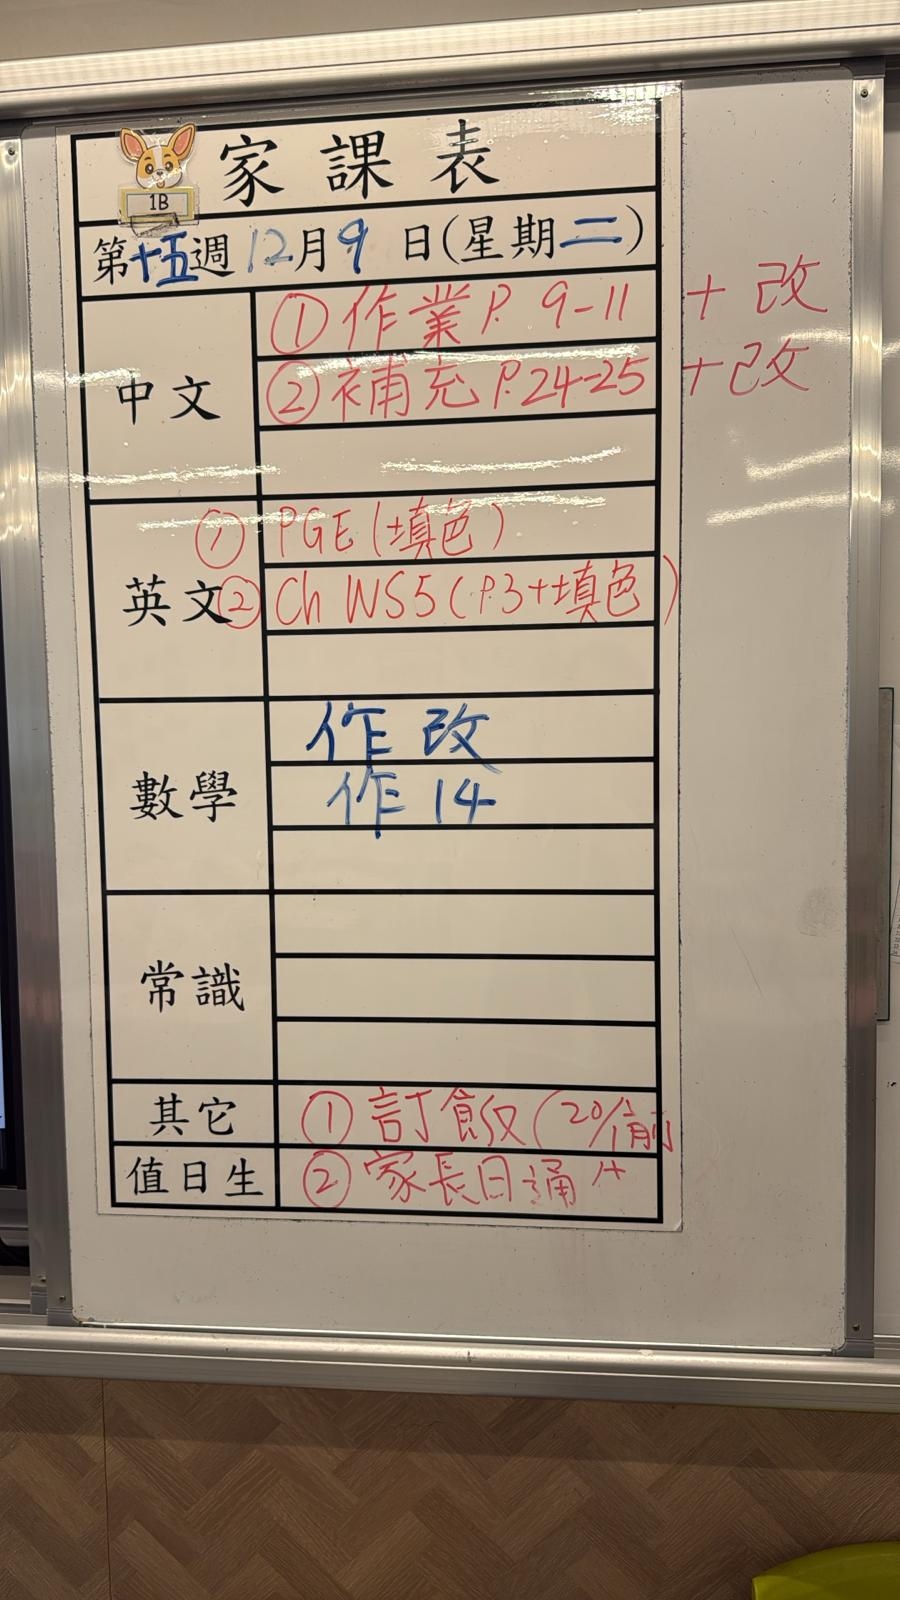 家課表
1B
第十五週 12月9日(星期二)
中文
① 作業 P. 9-11 + 改
② 補充 P.24-25 + 改
英文
① PGE (填色)
② Ch WS5 (P.3+填色)
數學
作改
作14
常識
其它
① 訂飯 (20/1前
值日生
② 家長日通